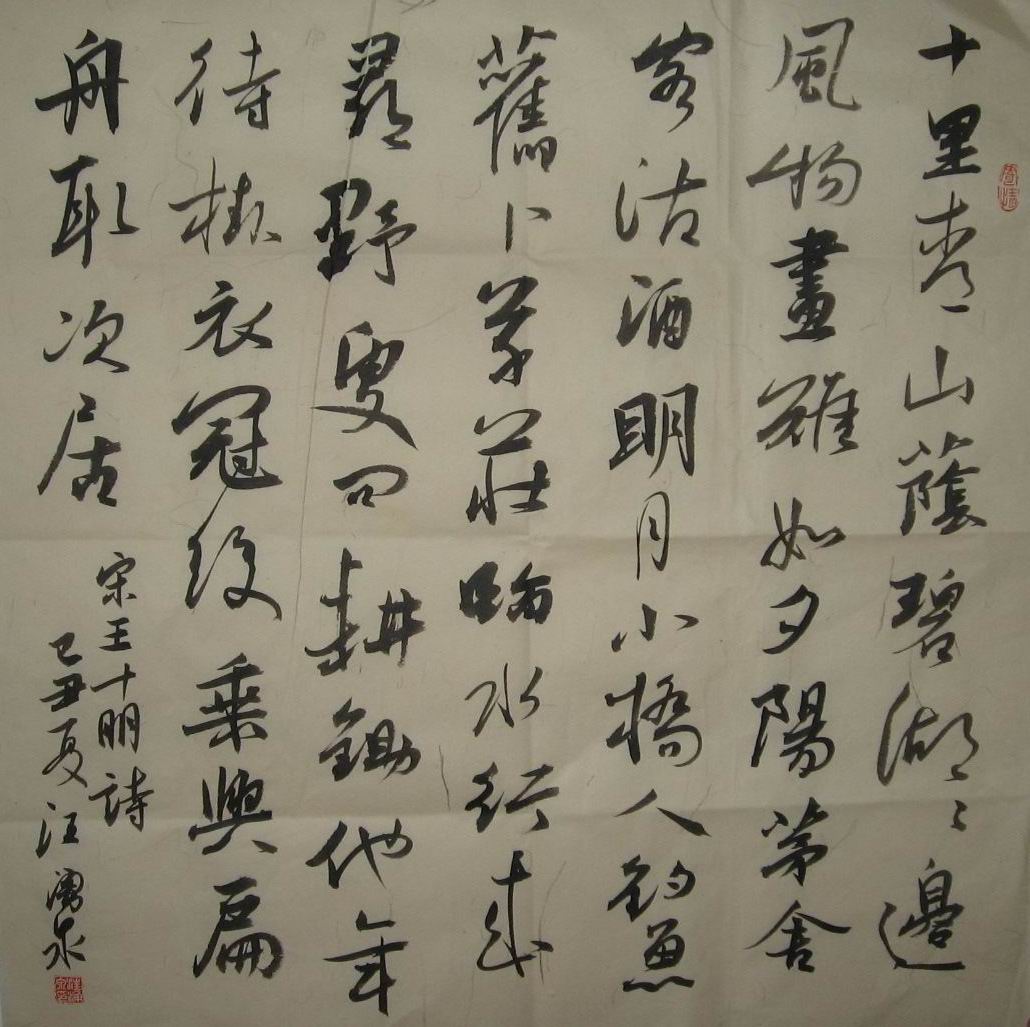 十里青山蔭碧湖〻邊
風物畫難如夕陽茅舍
客沽酒明月小橋人釣魚
舊卜草莊臨水竹來
尋野叟問耕鋤他年
待掛衣冠後乘興扁
舟取次居
宋王十朋詩
己丑夏汪泉